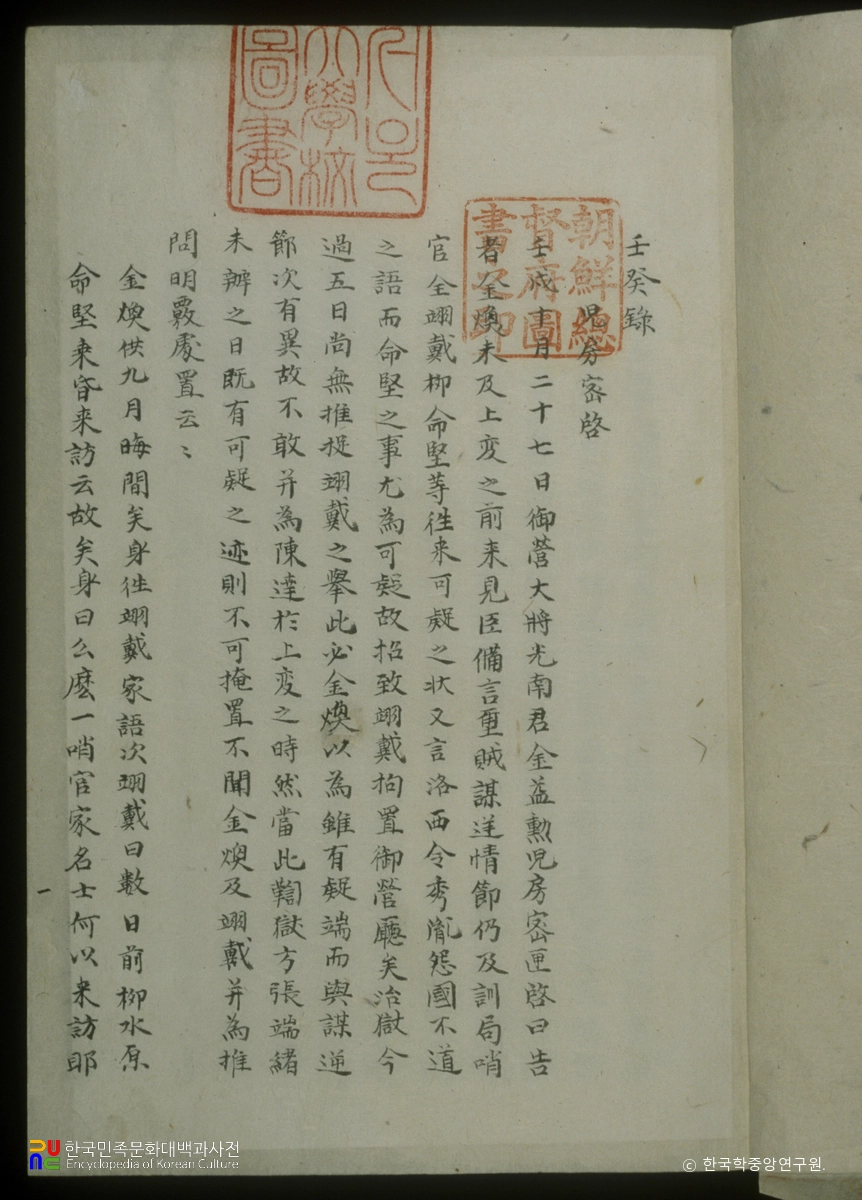 壬癸錄
児房密啓
壬戌十月二十七日御營大將光南君金益勳児房密匣啓曰告
者金煥未及上変之前来見臣備言壐賊謀逆情節仍及訓局哨
官全翊戴柳命堅等徃来可疑之状又言洛西令秀胤怨國不道
之語而命堅之事尤為可疑故招致翊戴拘置御營廳矣治獄今
過五日尚無推捉翊戴之擧此必金煥以為雖有疑端而與謀逆
節次有異故不敢并為陳達於上変之時然當此鞫獄方張端緒
未辦之日既有可疑之迹則不可掩置不聞金煥及翊戴并為推
問明覈處置云〻
金煥供九月晦間矣身徃翊戴家語次翊戴曰数日前柳水原
命堅来昏来訪云故矣身曰么麽一哨官家名士何以来訪耶
朝鮮總
督府圖
書之印
大學校
圖書
한국민족문화대백과사전
Encyclopedia of Korean Culture
ⓒ 한국학중앙연구원.